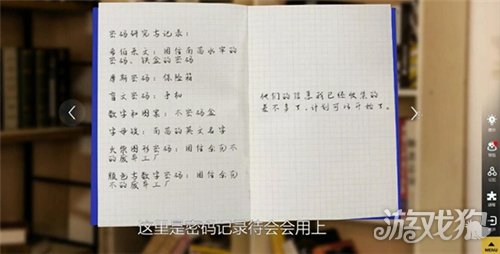 密码研究者记录：
希伯来文：困住南茜水牢的
密码、铁盒的密码
摩斯密码：保险箱
盲文密码：手机
数字和图案：木密码盒
字母键：南茜的英文名字
火柴图形密码：困住金莉
的废弃工厂
颜色与数字密码：困住金莉
的废弃工厂
他们的信息我已经收集的
差不多了，计划可以开始了。
这里是密码记录待会会用上
游戏狗
MENU